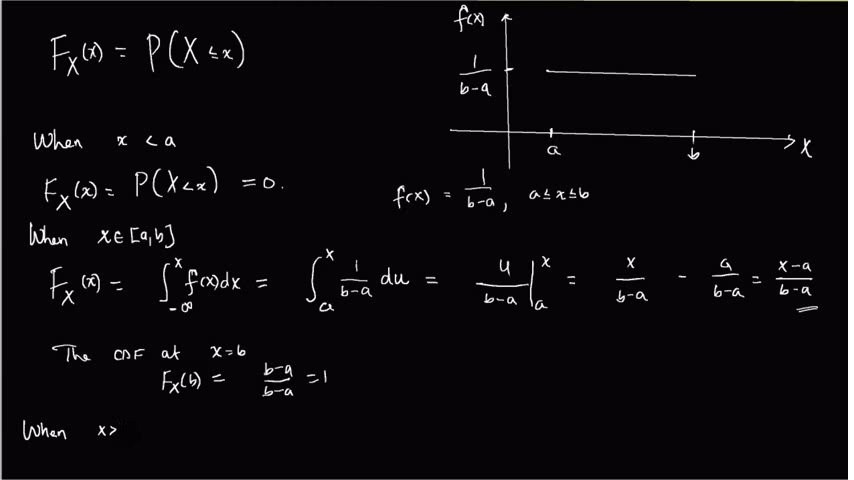 F_X(x) = P(X ≤ x)
f(x)
1/(b-a)
a
b
x
When x < a
F_X(x) = P(X < x) = 0.
f(x) = 1/(b-a), a ≤ x ≤ b
When x ∈ [a,b]
F_X(x) = ∫_{-∞}^{x} f(x)dx = ∫_{a}^{x} 1/(b-a) du = u/(b-a) |_{a}^{x} = x/(b-a) - a/(b-a) = (x-a)/(b-a)
The CDF at x=b
F_X(b) = (b-a)/(b-a) = 1
When x>